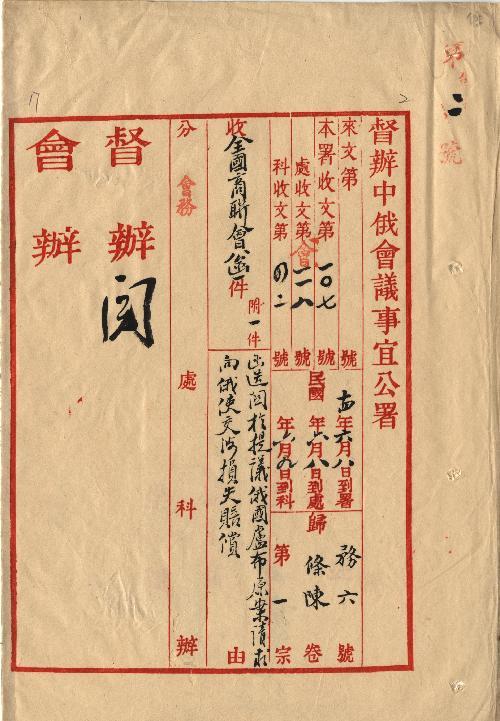 第二號
督辦中俄會議事宜公署
來文第 號 十四年六月八日到署 務六號
本署收文第一〇七號 民國 年六月八日到處 歸條陳卷
處收文第會一一八號
科收文第四二號 年六月九日到科 第一宗
收全國商聯會函件 附一件
函送關於提議俄國盧布原案請求向俄使交涉損失賠償由
分會務處科辦
督辦 閱
會辦